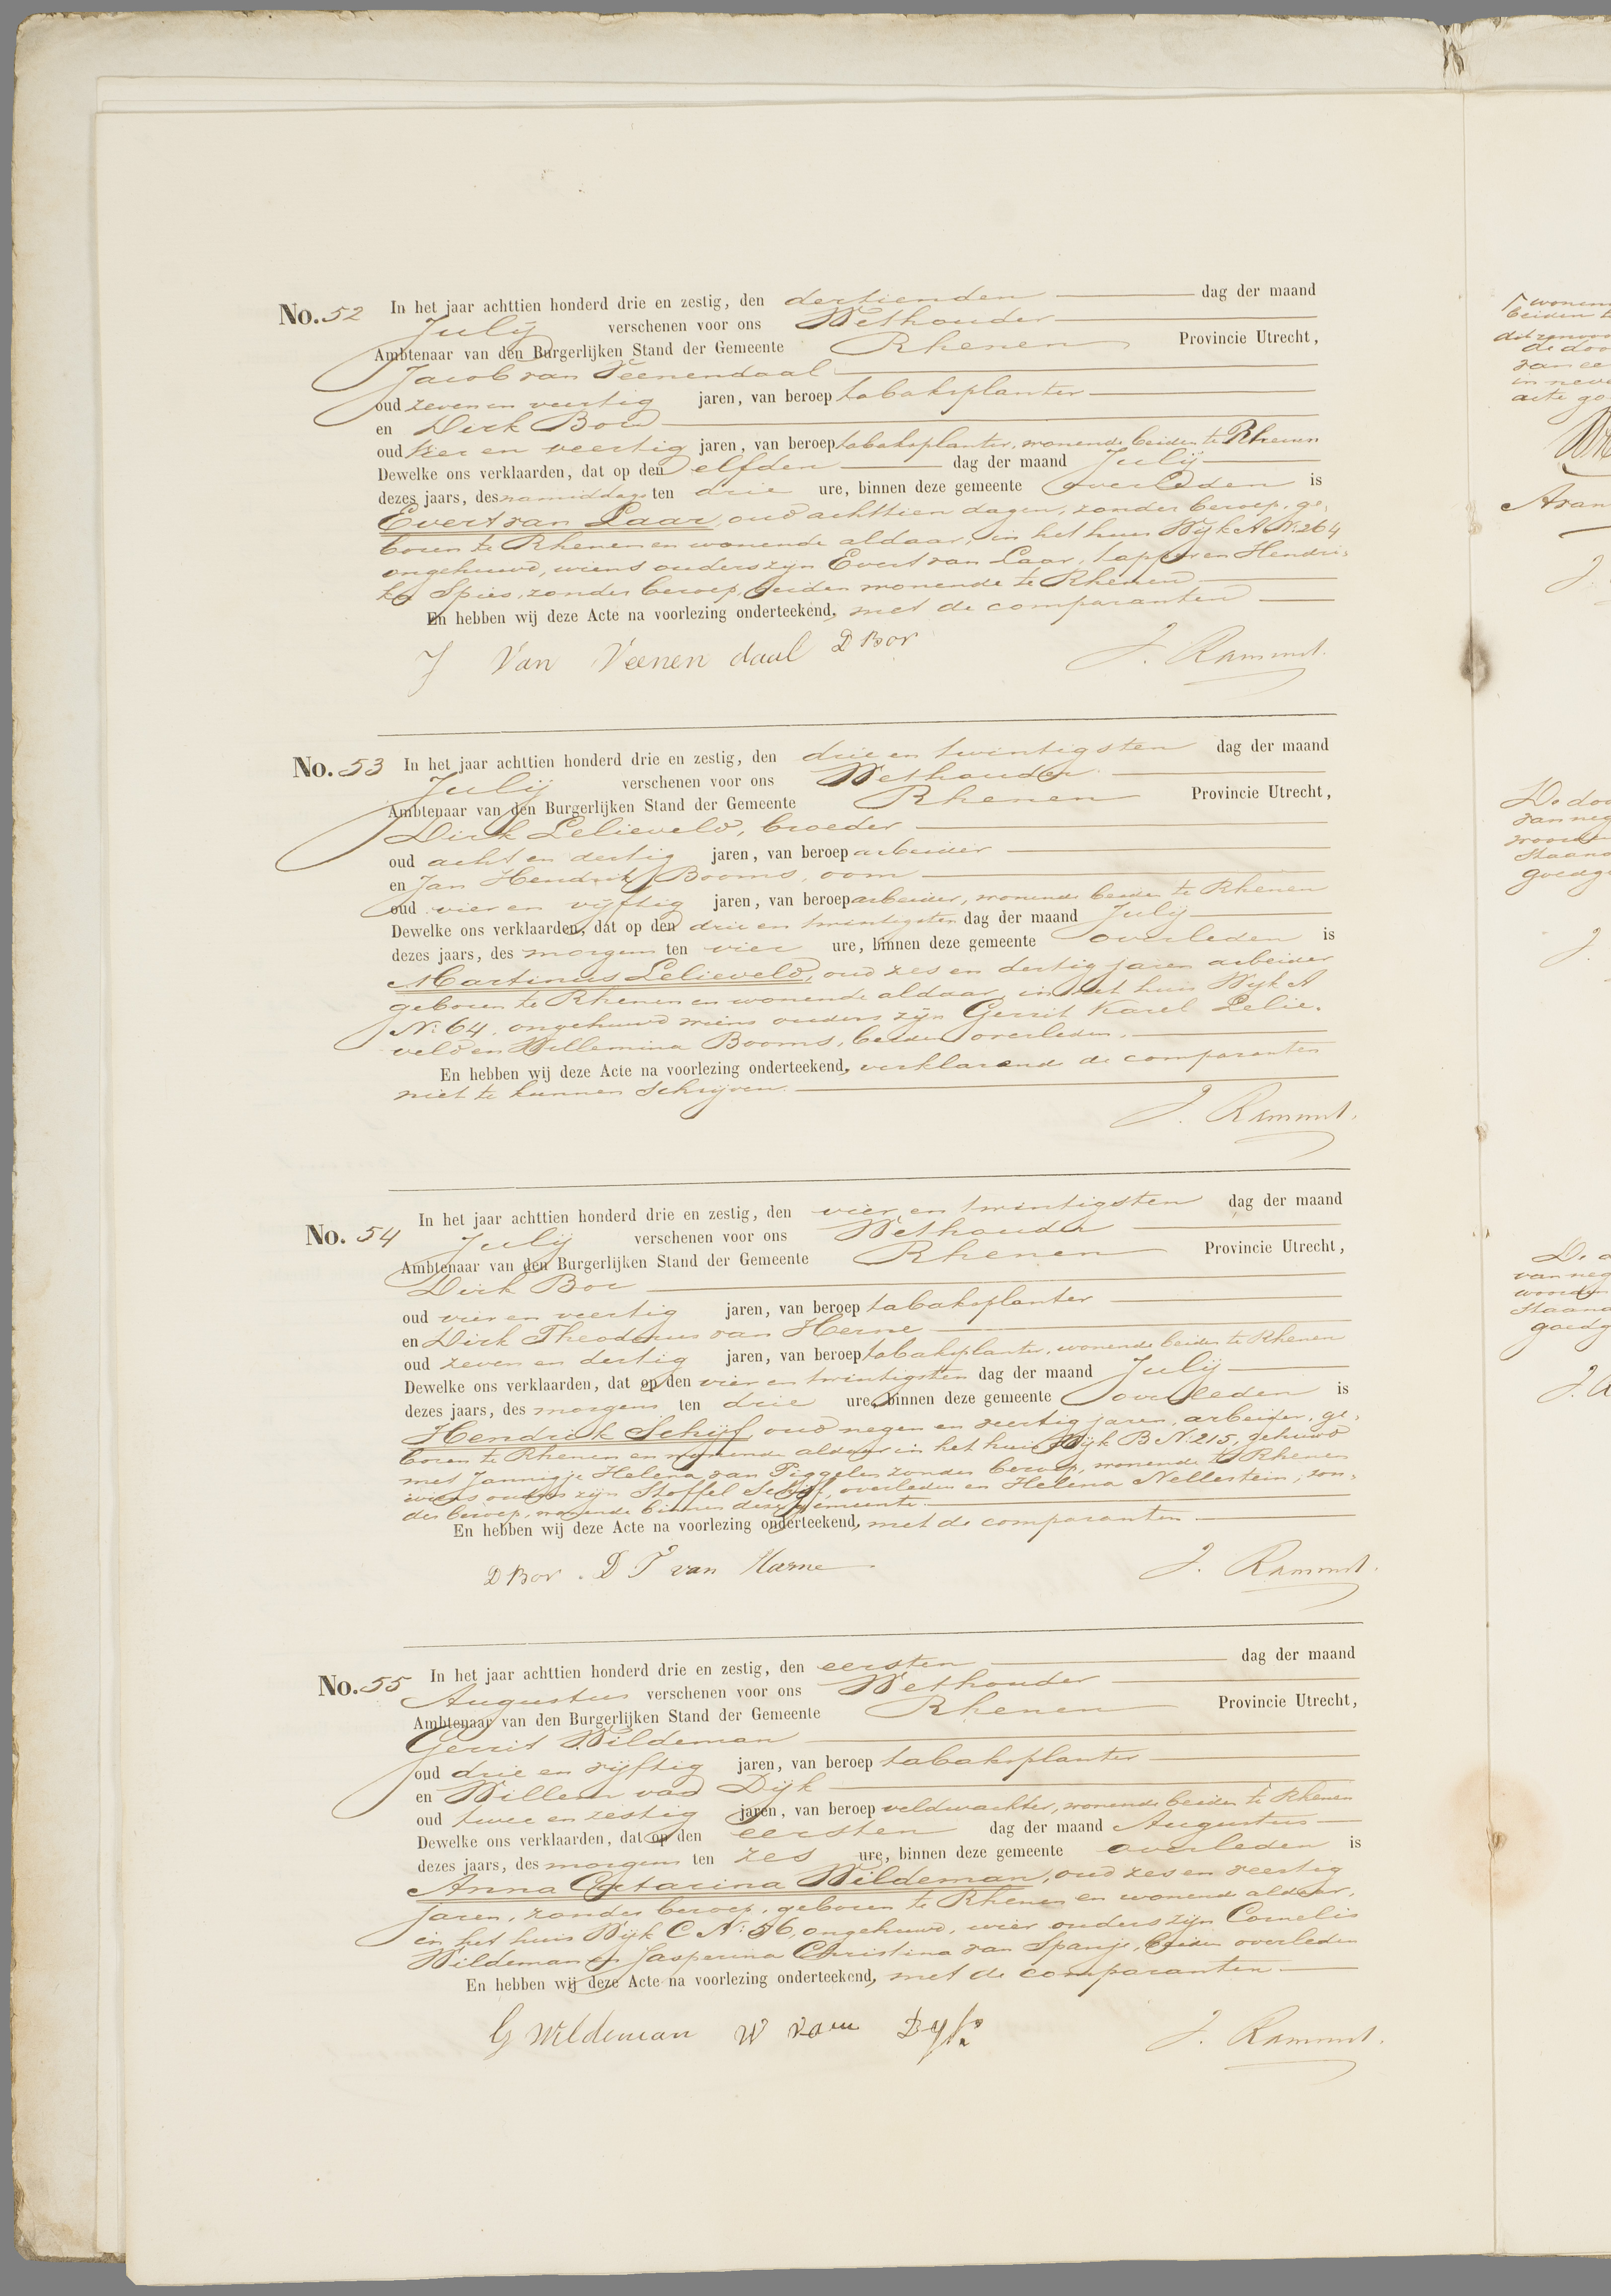 No. 52 In het jaar achttien honderd drie en zestig, den dertienden dag der maand
July verschenen voor ons Wethouder
Ambtenaar van den Burgerlijken Stand der Gemeente Rhenen Provincie Utrecht,
Jacob van Veenendaal
oud zeven en veertig jaren, van beroep tabaksplanter
en Dirk Bor
oud vier en veertig jaren, van beroep tabaksplanter, wonende beiden te Rhenen
Dewelke ons verklaarden, dat op den elfden dag der maand July
dezes jaars, des namiddags ten drie ure, binnen deze gemeente overleden is
Evert van Laar, oud achttien dagen, zonder beroep, ge-
boren te Rhenen en wonende aldaar, in het huis Wijk A No. 264
ongehuwd, wiens ouders zijn Evert van Laar, tapper en Hendri-
ka Spies, zonder beroep, beiden wonende te Rhenen
En hebben wij deze Acte na voorlezing onderteekend, met de comparanten
J Van Veenen daal D Bor J. Rammt.
No. 53 In het jaar achttien honderd drie en zestig, den drie en twintigsten dag der maand
July verschenen voor ons Wethouder
Ambtenaar van den Burgerlijken Stand der Gemeente Rhenen Provincie Utrecht,
Dirk Lelieveld, broeder
oud acht en dertig jaren, van beroep arbeider
en Jan Hendrik Booms, oom
oud vier en vijftig jaren, van beroep arbeider, wonende beiden te Rhenen
Dewelke ons verklaarden, dat op den drie en twintigsten dag der maand July
dezes jaars, des morgens ten vier ure, binnen deze gemeente overleden is
Martinus Lelieveld, oud zes en dertig jaren arbeider
geboren te Rhenen en wonende aldaar, in het huis Wijk A
No. 64, ongehuwd wiens ouders zijn Gerrit Karel Lelie-
veld en Willemina Booms, beiden overleden.
En hebben wij deze Acte na voorlezing onderteekend, verklarende de comparanten
niet te kunnen schrijven.
J. Rammt.
No. 54 In het jaar achttien honderd drie en zestig, den vier en twintigsten dag der maand
July verschenen voor ons Wethouder
Ambtenaar van den Burgerlijken Stand der Gemeente Rhenen Provincie Utrecht,
Dirk Bor
oud vier en veertig jaren, van beroep tabaksplanter
en Dirk Theodorus van Herne
oud zeven en dertig jaren, van beroep tabaksplanter, wonende beiden te Rhenen
Dewelke ons verklaarden, dat op den vier en twintigsten dag der maand July
dezes jaars, des morgens ten drie ure, binnen deze gemeente overleden is
Hendrik Schijf, oud negen en veertig jaren, arbeider, ge-
boren te Rhenen en wonende aldaar in het huis Wijk B No. 215, gehuwd
met Jannigje Helena van Piggelen zonder beroep, wonende te Rhenen
wiens ouders zijn Stoffel Schijf, overleden en Helena Nellestein, zon-
der beroep, wonende binnen deze gemeente.
En hebben wij deze Acte na voorlezing onderteekend, met de comparanten
D Bor. D T van Harne J. Rammt.
No. 55 In het jaar achttien honderd drie en zestig, den eersten dag der maand
Augustus verschenen voor ons Wethouder
Ambtenaar van den Burgerlijken Stand der Gemeente Rhenen Provincie Utrecht,
Gerrit Wildeman
oud drie en vijftig jaren, van beroep tabaksplanter
en Willem van Dijk
oud twee en zestig jaren, van beroep veldwachter, wonende beiden te Rhenen
Dewelke ons verklaarden, dat op den eersten dag der maand Augustus
dezes jaars, des morgens ten zes ure, binnen deze gemeente overleden is
Anna Catarina Wildeman, oud zes en veertig
jaren, zonder beroep, geboren te Rhenen en wonende aldaar,
in het huis Wijk C No. 56, ongehuwd, wier ouders zijn Cornelis
Wildeman en Jasperina Christina van Spanje, beiden overleden
En hebben wij deze Acte na voorlezing onderteekend, met de comparanten
G Wildeman W van Dyk J. Rammt.